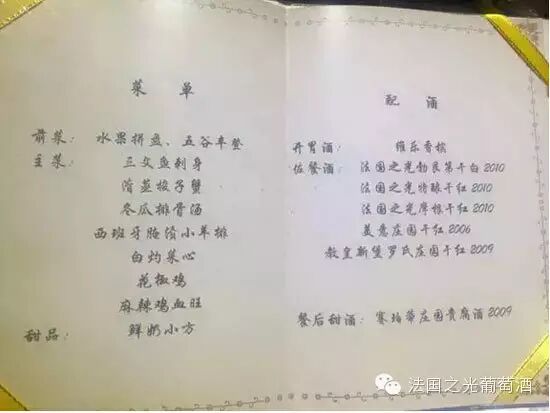 菜 单
前菜： 水果拼盘、五谷丰登
主菜： 三文鱼刺身
清蒸梭子蟹
冬瓜排骨汤
西班牙腌渍小羊排
白灼菜心
花椒鸡
麻辣鸡血旺
甜品： 鲜奶小方
配 酒
开胃酒： 维乐香槟
佐餐酒： 法国之光勃艮第干白2010
法国之光特酿干红2010
法国之光摩根干红2010
美意庄园干红2006
教皇新堡罗氏庄园干红2009
餐后甜酒： 赛珀蒂庄园贵腐酒2009
法国之光葡萄酒